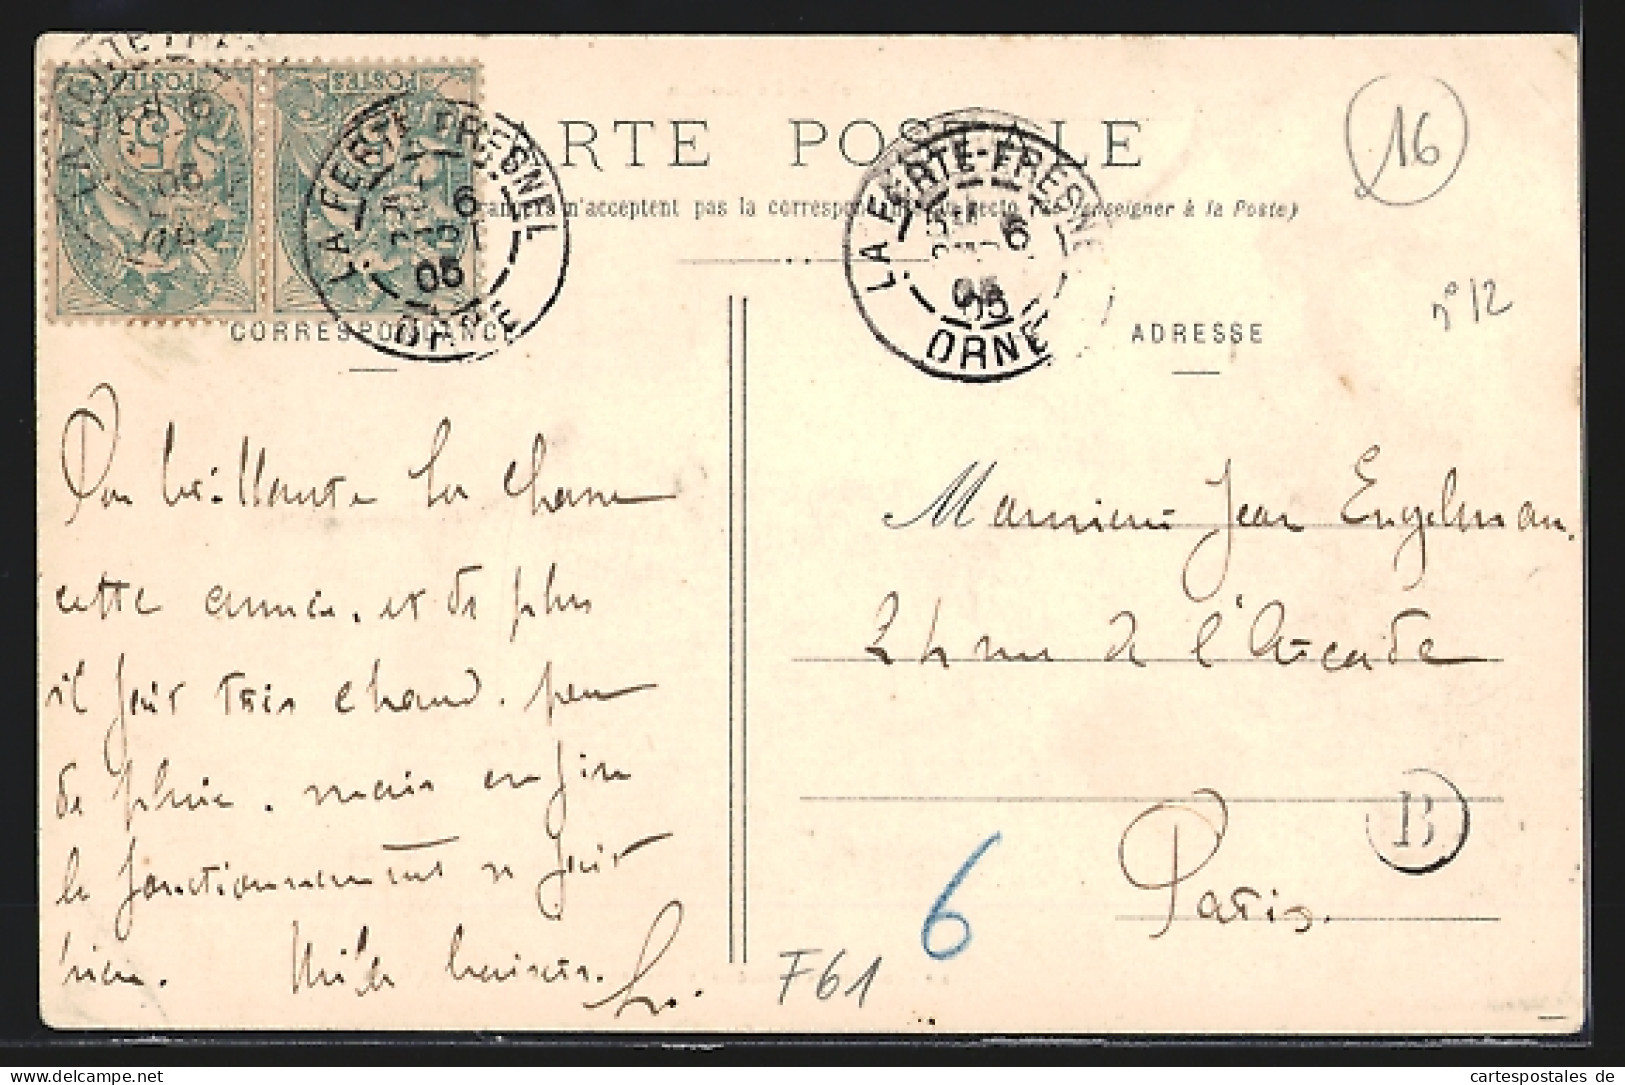 CARTE POSTALE
n'acceptent pas la correspondance au recto (se renseigner à la Poste)
POSTES
POSTES
5c
LA FERTE-FRESNEL
6
05
ORNE
LA FERTE-FRESNEL
6
05
ORNE
16
n° 12
CORRESPONDANCE
ADRESSE
Pas brillante la chasse
cette année. et de plus
il fait très chaud. peu
de pluie. mais enfin
le fonctionnement se fait
bien. Mille baisers.
Monsieur Jean Engelman.
24 rue de l'Arcade
Paris.
B
6
F61
delcampe.net
cartespostales de